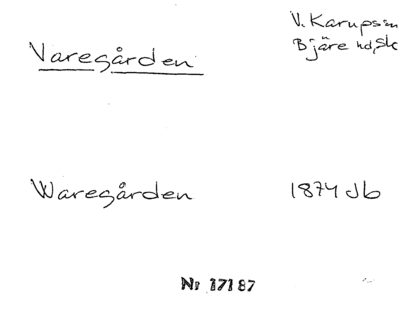 Varegården
V. Karups sn
Bjäre hd, Sk
Waregården 1874 Jb
Nr 17187